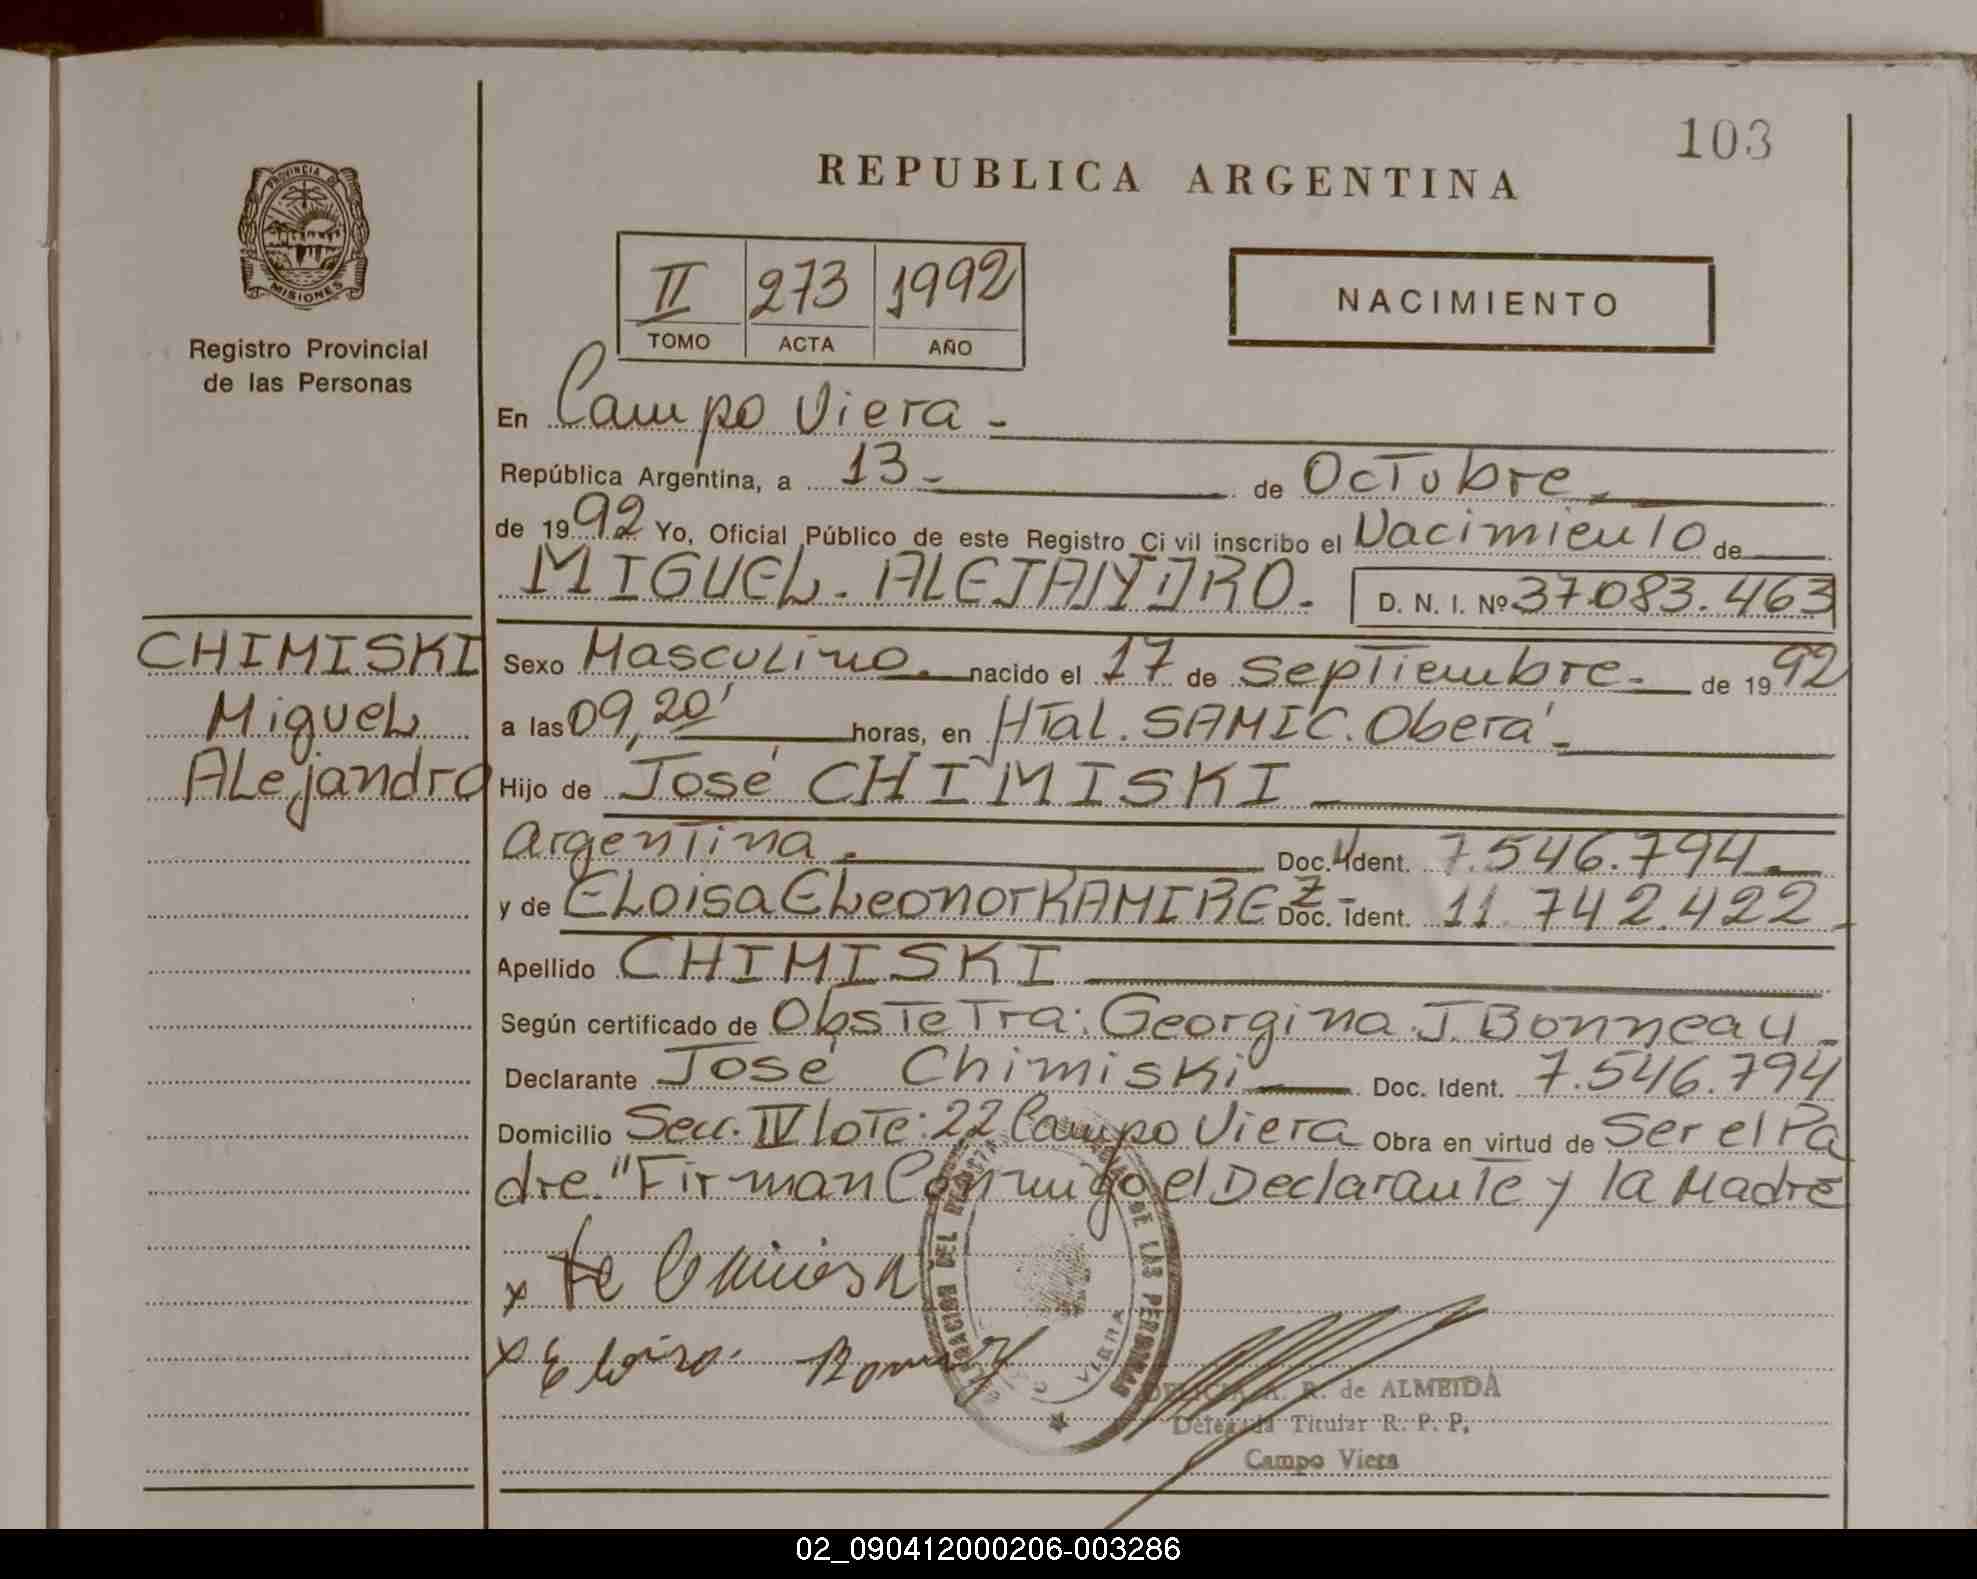 103
REPUBLICA ARGENTINA
PROVINCIA DE
MISIONES
Registro Provincial
de las Personas
II 273 1992
TOMO ACTA AÑO
NACIMIENTO
En Campo Viera -
República Argentina, a 13 - de Octubre -
de 1992 Yo, Oficial Público de este Registro Civil inscribo el Nacimiento de
MIGUEL - ALEJANDRO. D. N. I. Nº 37.083.463
CHIMISKI
Miguel
Alejandro
Sexo Masculino. nacido el 17 de Septiembre - de 1992
a las 09,20' horas, en Htal. SAMIC. Oberá -
Hijo de José CHIMISKI
Argentina. Doc. Ident. 7.546.794
y de Eloisa Eleonor RAMIREZ Doc. Ident. 11.742.422
Apellido CHIMISKI
Según certificado de Obstetra: Georgina J. Bonneau -
Declarante José Chimiski Doc. Ident. 7.546.794
Domicilio Secc. IV lote: 22 Campo Viera Obra en virtud de Ser el Pa
dre. "Firman Conmigo el Declarante y la Madre
x
x Eloisa
DEL DE LAS PERSONAS
VIERA
A. R. de ALMEIDA
Delegada Titular R. P. P.
Campo Viera
02_090412000206-003286